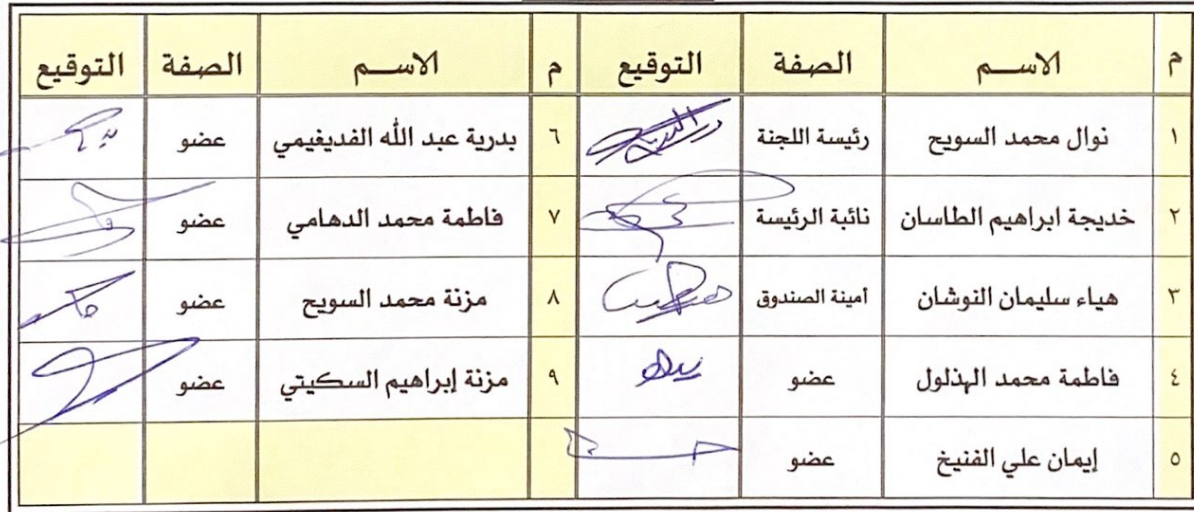 م الاســم الصفة التوقيع م الاســم الصفة التوقيع
١ نوال محمد السويح رئيسة اللجنة ٦ بدرية عبد الله الفديغيمي عضو
٢ خديجة ابراهيم الطاسان نائبة الرئيسة ٧ فاطمة محمد الدهامي عضو
٣ هياء سليمان النوشان أمينة الصندوق ٨ مزنة محمد السويح عضو
٤ فاطمة محمد الهذلول عضو ٩ مزنة إبراهيم السكيتي عضو
٥ إيمان علي الفنيخ عضو